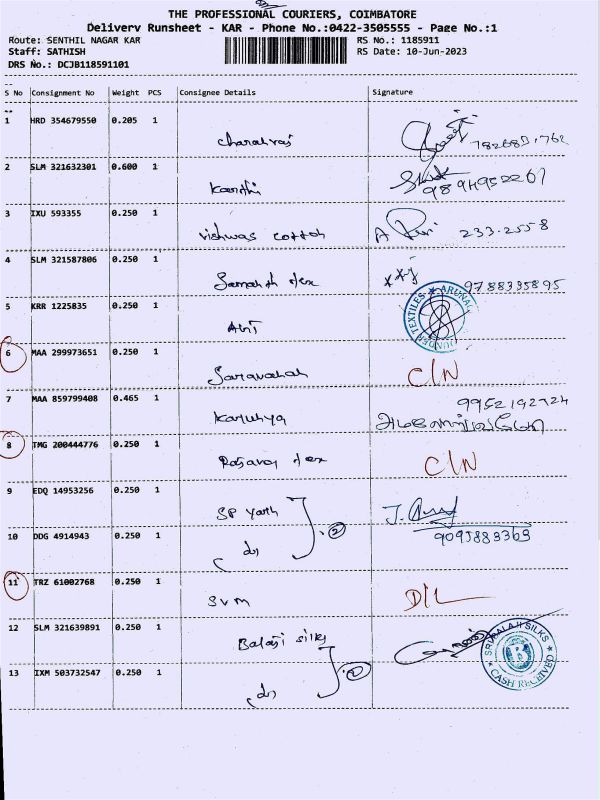 THE PROFESSIONAL COURIERS, COIMBATORE
Delivery Runsheet - KAR - Phone No.:0422-3505555 - Page No.:1
Route: SENTHIL NAGAR KAR RS No.: 1185911
Staff: SATHISH RS Date: 10-Jun-2023
DRS No.: DCJB118591101
S No Consignment No Weight PCS Consignee Details Signature
1 HRD 354679550 0.205 1
2 SLM 321632301 0.600 1 9894952261
3 IXU 593355 0.250 1 vishwas cotton A 233-2558
4 SLM 321587806 0.250 1 9788335895
5 KRR 1225835 0.250 1
6 MAA 299973651 0.250 1 Saravanah C/N
7 MAA 859799408 0.465 1 9952192724
8 TMG 200444776 0.250 1 C/N
9 EDQ 14953256 0.250 1 SP yarn J.
10 DDG 4914943 0.250 1 do 2 9095883363
11 TRZ 61002768 0.250 1 SVM D/L
12 SLM 321639891 0.250 1 Balaji silks
SRI BALAJI SILKS
B
CASH RECEIVED
13 IXM 503732547 0.250 1 do 2